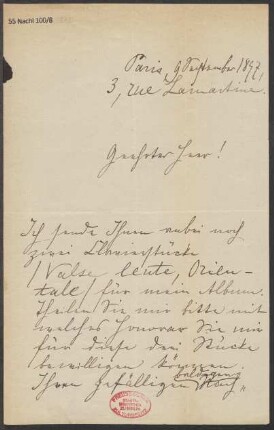 55 Nachl 100/B
Paris, 9 September 1897,
3, rue Lamartine.
Geehrter Herr!
Ich sende Ihnen anbei noch
zwei Clavierstücke
(Valse lente, Orien-
tale) für mein Album.
Theilen Sie mir bitte mit
welches Honorar Sie mir
für diese drei Stücke
bewilligen können.
Ihren gefälligen